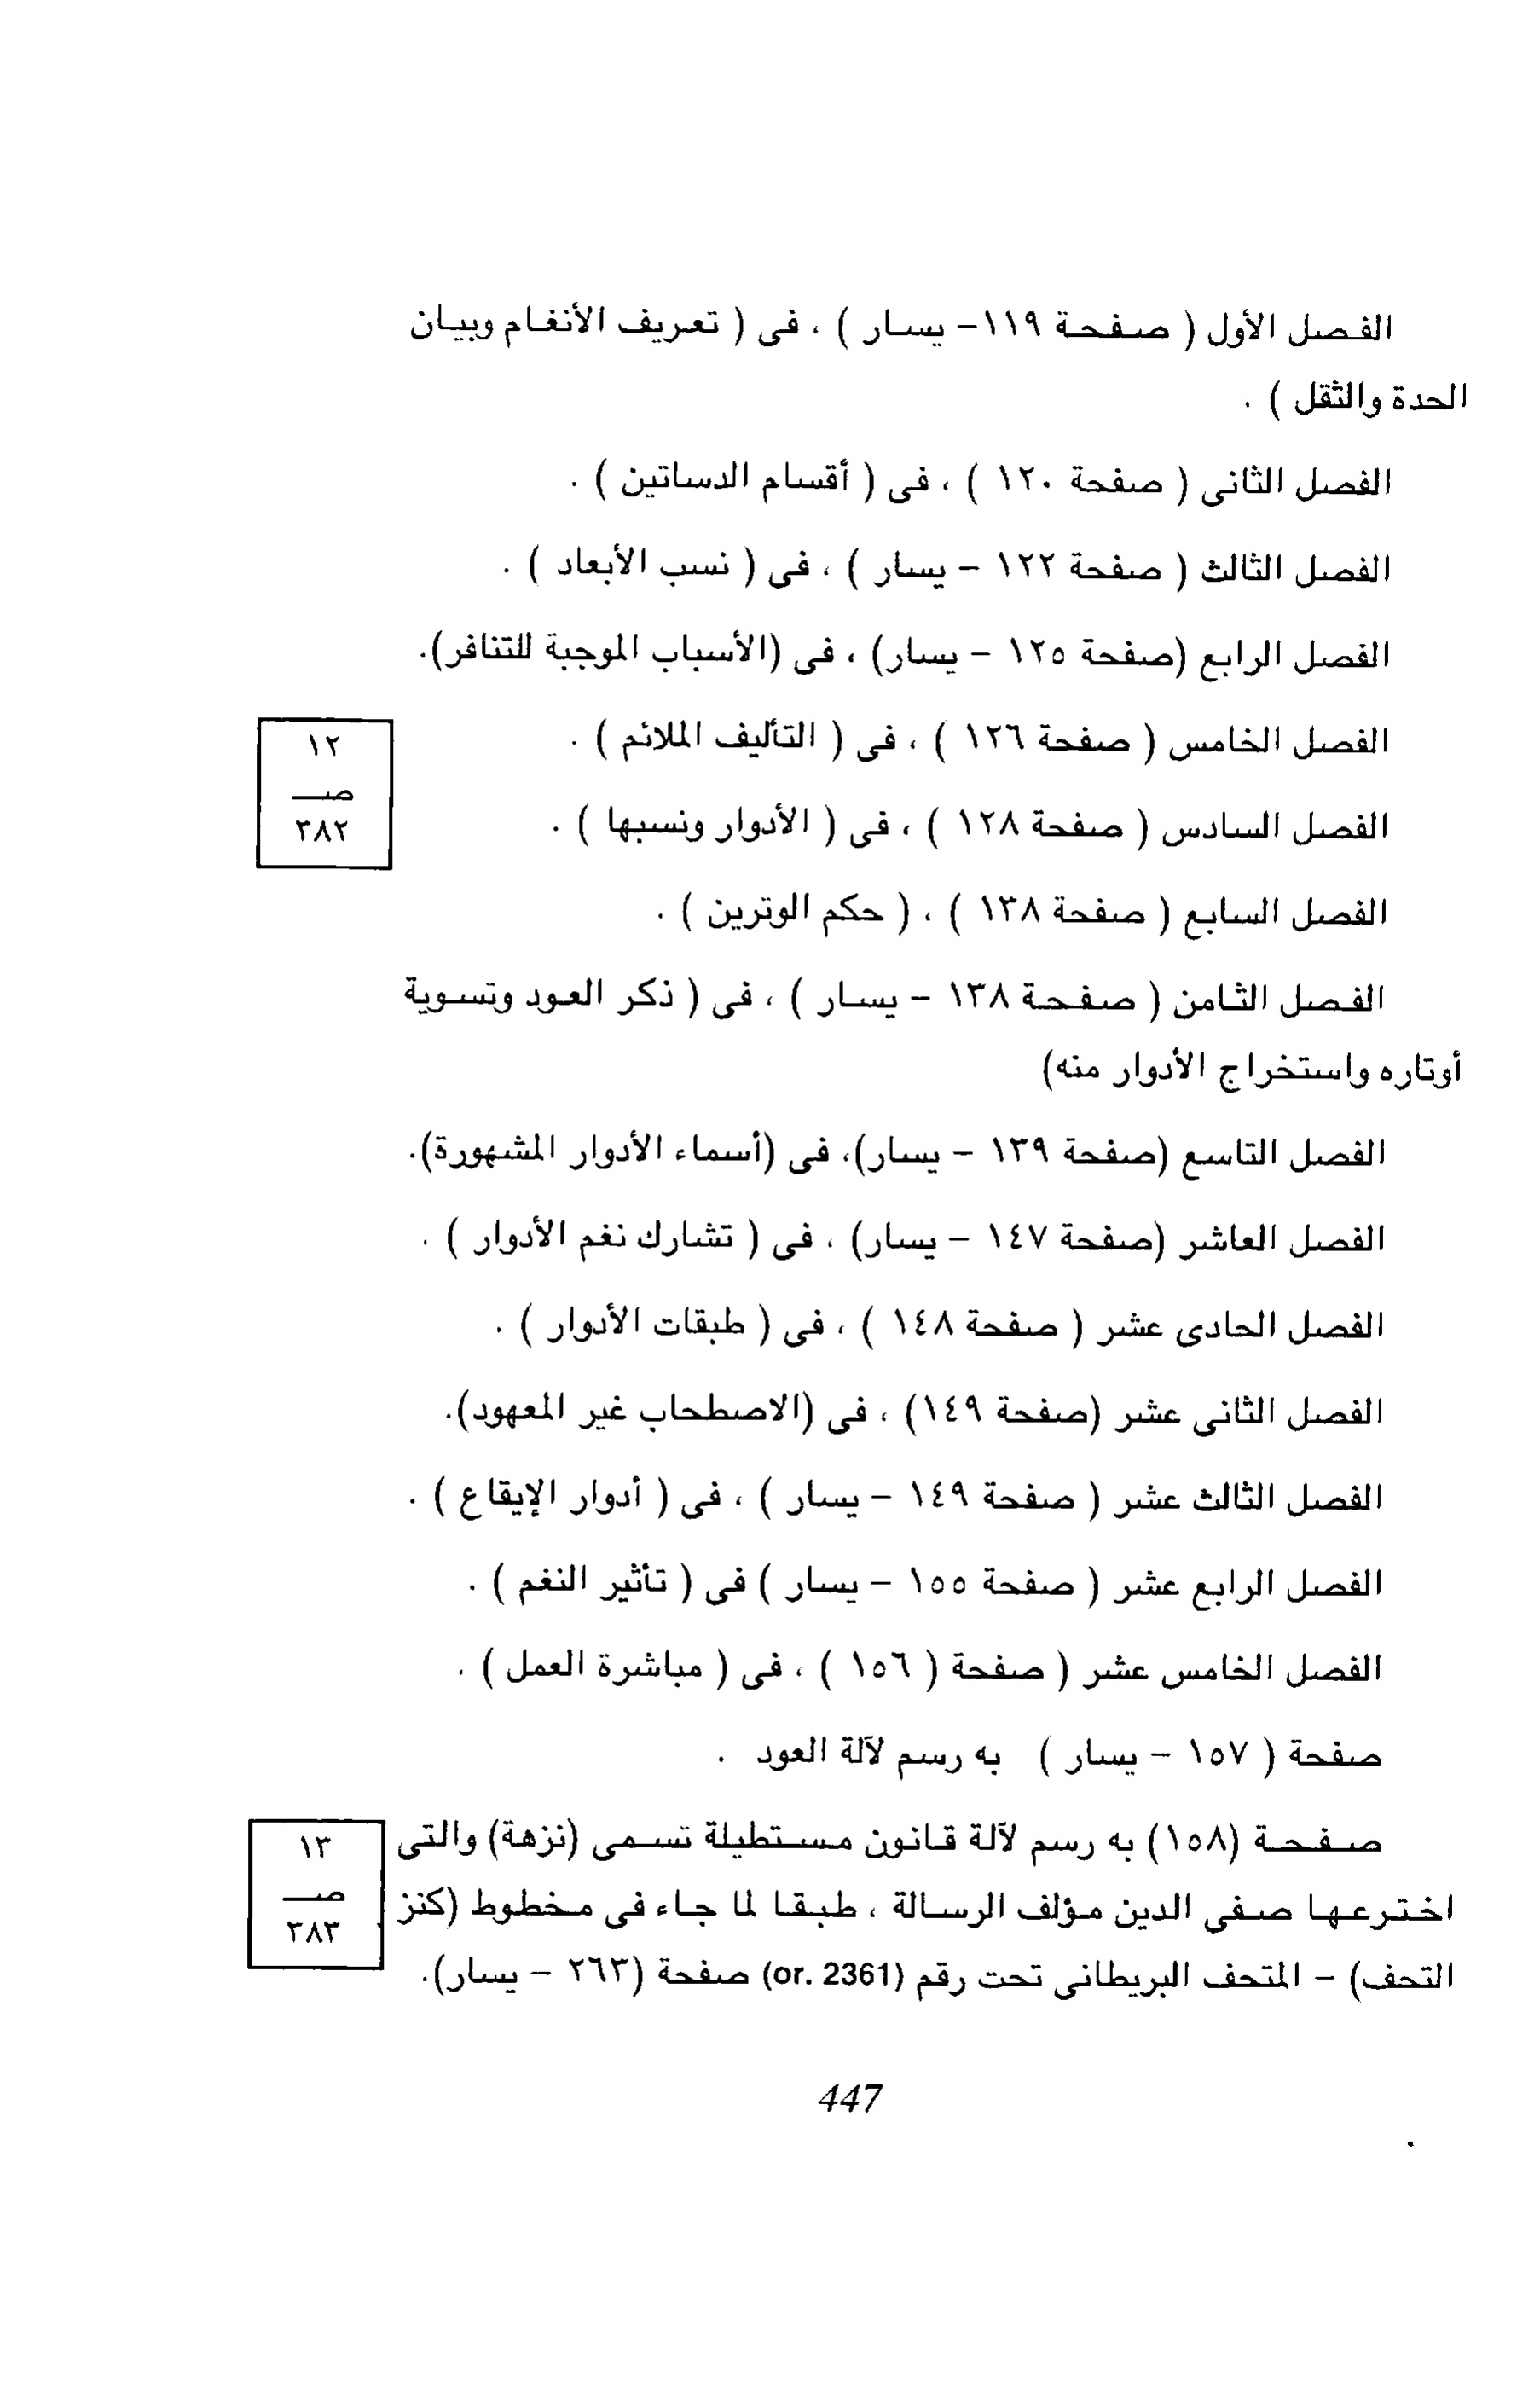 الفصل الأول ( صفحة ١١٩- يسار ) ، فى ( تعريف الأنغام وبيان
الحدة والثقل ) .
الفصل الثانى ( صفحة ١٢٠ ) ، فى ( أقسام الدساتين ) .
الفصل الثالث ( صفحة ١٢٢ - يسار ) ، فى ( نسب الأبعاد ) .
الفصل الرابع (صفحة ١٢٥ - يسار) ، فى (الأسباب الموجبة للتنافر).
الفصل الخامس ( صفحة ١٢٦ ) ، فى ( التأليف الملائم ) .
١٢
صـ
٣٨٢
الفصل السادس ( صفحة ١٢٨ ) ، فى ( الأدوار ونسبها ) .
الفصل السابع ( صفحة ١٣٨ ) ، ( حكم الوترين ) .
الفصل الثامن ( صفحة ١٣٨ - يسار ) ، فى ( ذكر العود وتسوية
أوتاره واستخراج الأدوار منه)
الفصل التاسع (صفحة ١٣٩ - يسار)، فى (أسماء الأدوار المشهورة).
الفصل العاشر (صفحة ١٤٧ - يسار) ، فى ( تشارك نغم الأدوار ) .
الفصل الحادى عشر ( صفحة ١٤٨ ) ، فى ( طبقات الأدوار ) .
الفصل الثانى عشر (صفحة ١٤٩) ، فى (الاصطحاب غير المعهود).
الفصل الثالث عشر ( صفحة ١٤٩ - يسار ) ، فى ( أدوار الإيقاع ) .
الفصل الرابع عشر ( صفحة ١٥٥ - يسار ) فى ( تأثير النغم ) .
الفصل الخامس عشر ( صفحة ( ١٥٦ ) ، فى ( مباشرة العمل ) .
صفحة ( ١٥٧ - يسار ) به رسم لآلة العود .
صفحة (١٥٨) به رسم لآلة قانون مستطيلة تسمى (نزهة) والتى
اخترعها صفى الدين مؤلف الرسالة ، طبقا لما جاء فى مخطوط (كنز
التحف) - المتحف البريطانى تحت رقم (or. 2361) صفحة (٢٦٣ - يسار).
١٣
صـ
٣٨٣
447